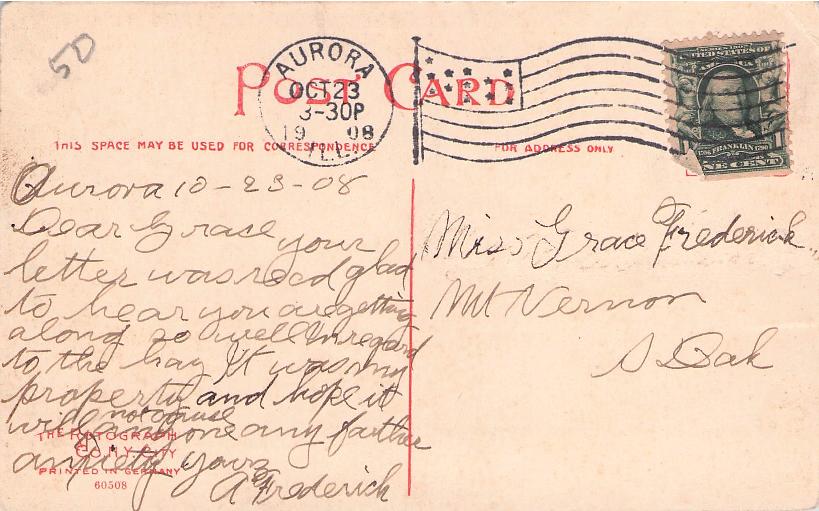 50
POST CARD
AURORA
OCT 23
3-30P
1908
ILL.
SERIES 1902
UNITED STATES OF
AMERICA
1706 FRANKLIN 1790
1
ONE CENT
THIS SPACE MAY BE USED FOR CORRESPONDENCE
FOR ADDRESS ONLY
Aurora 10-23-08
Dear Grace your
letter was recd glad
to hear you are getting
along so well In regard
to the hay It was my
property and hope it
will not cause
anyone any farther
anxiety yours
A Frederick
Miss Grace Frederick
Mt Vernon
S Dak
THE ROTOGRAPH
CO. N.Y. CITY
PRINTED IN GERMANY
60508